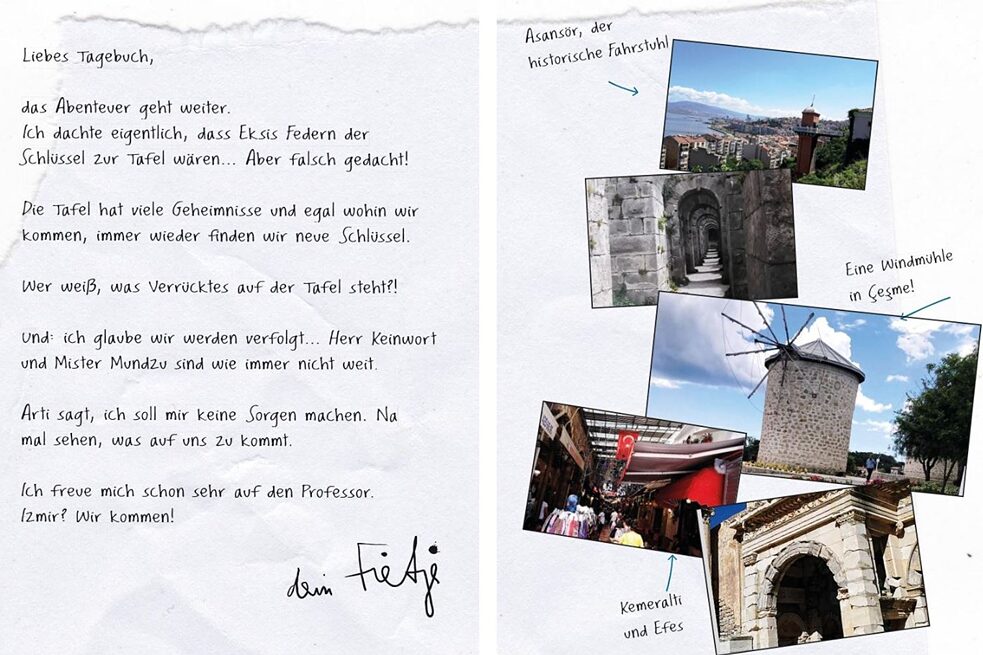 Liebes Tagebuch,
das Abenteuer geht weiter.
Ich dachte eigentlich, dass Eksis Federn der
Schlüssel zur Tafel wären... Aber falsch gedacht!
Die Tafel hat viele Geheimnisse und egal wohin wir
kommen, immer wieder finden wir neue Schlüssel.
Wer weiß, was Verrücktes auf der Tafel steht?!
Und: ich glaube wir werden verfolgt... Herr Keinwort
und Mister Mundzu sind wie immer nicht weit.
Arti sagt, ich soll mir keine Sorgen machen. Na
mal sehen, was auf uns zu kommt.
Ich freue mich schon sehr auf den Professor.
Izmir? Wir kommen!
dein Fietje
Asansör, der
historische Fahrstuhl
Eine Windmühle
in Çeşme!
Kemeralti
und Efes